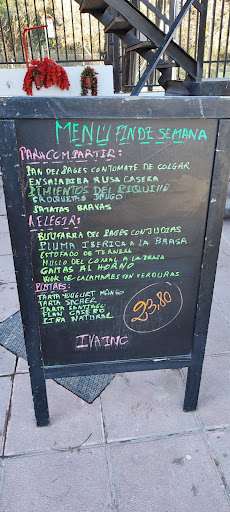 MENU FIN DE SEMANA
PARA COMPARTIR:
PAN DEL PAGES CON TOMATE DE COLGAR
ENSALADILLA RUSA CASERA
PIMIENTOS DEL PIQUILLO
CROQUETAS
PATATAS BRAVAS
A ELEGIR:
BUTIFARRA DEL PAGES CON JUDIAS
PLUMA IBERICA A LA BRASA
ESTOFADO DE TERNERA
MUSLO DEL CORRAL A LA BRASA
GAMBAS AL HORNO
WOK DE CALAMARES CON VERDURAS
POSTRES:
TARTA YOGURT MANGO
TARTA SACHER
TARTA SANTIAGO
FLAN CASERO
PIÑA NATURAL
23,80
IVA INC